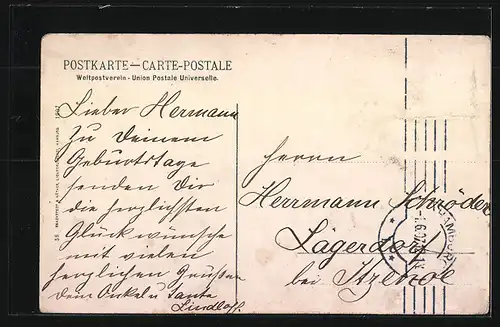 POSTKARTE — CARTE-POSTALE
Weltpostverein - Union Postale Universelle.
Lieber Hermann
Zu Deinem
Geburtstage
senden Dir
die herzlichsten
Glückwünsche
mit vielen
herzlichen Grüssen
Dein Onkel u Tante
Lindloff.
Herrn
Herrmann Schröder
Lägerdorf
bei Itzehoe
HAMBURG